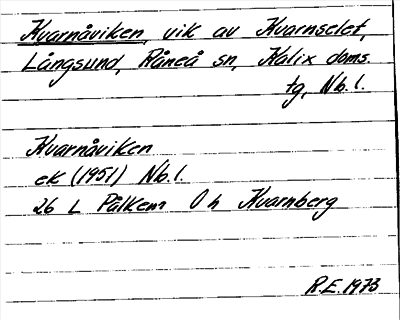 Kvarnåviken, vik av Kvarnselet,
Långsund, Råneå sn, Kalix doms.
tg, Nb.l.
Kvarnåviken
ek (1951) Nb.l.
26 L Pålkem 0 h Kvarnberg
R.E. 1973